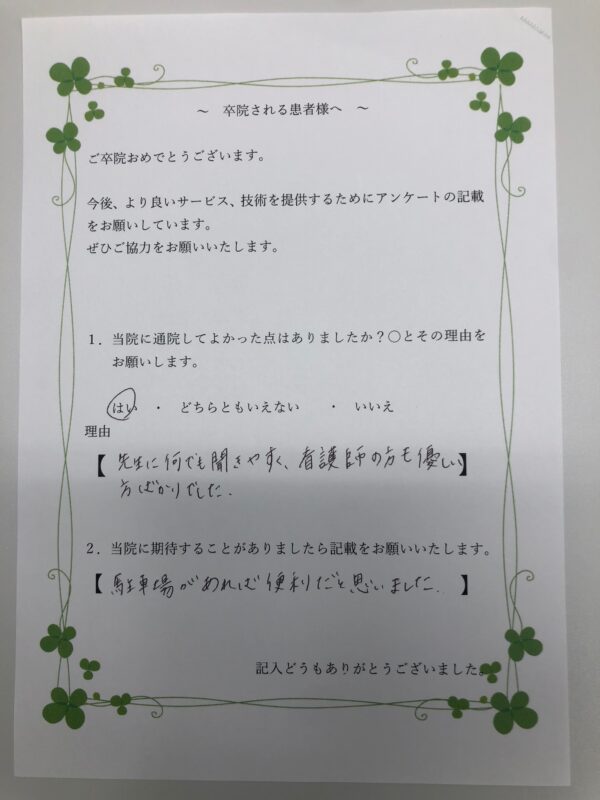 ～　卒院される患者様へ　～
ご卒院おめでとうございます。
今後、より良いサービス、技術を提供するためにアンケートの記載
をお願いしています。
ぜひご協力をお願いいたします。
１．当院に通院してよかった点はありましたか？〇とその理由を
お願いします。
はい　・　どちらともいえない　・　いいえ
理由
【 先生に何でも聞きやすく、看護師の方も優しい 】
方ばかりでした．
２．当院に期待することがありましたら記載をお願いいたします。
【 駐車場があれば便利だと思いました． 】
記入どうもありがとうございました。